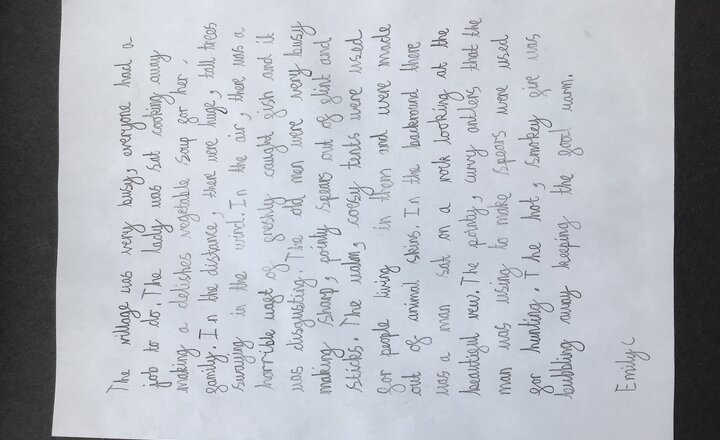 The village was very busy, everyone had a
job to do. The lady was sat cooking away
making a delishes vegetable soup for her
family. In the distance, there were huge, tall trees
swaying in the wind. In the air, there was a
horrible waft of freshly caught fish and it
was disgusting. The old men were very busy
making sharp, pointy spears out of flint and
sticks. The walm, coesy tents were used
for people living in them and were made
out of animal skins. In the backround there
was a man sat on a rock looking at the
beautiful vew. The pointy, curvy antlers that the
man was using to make spears were used
for hunting. The hot, smokey fire was
bubbling away keeping the food warm.
Emily C